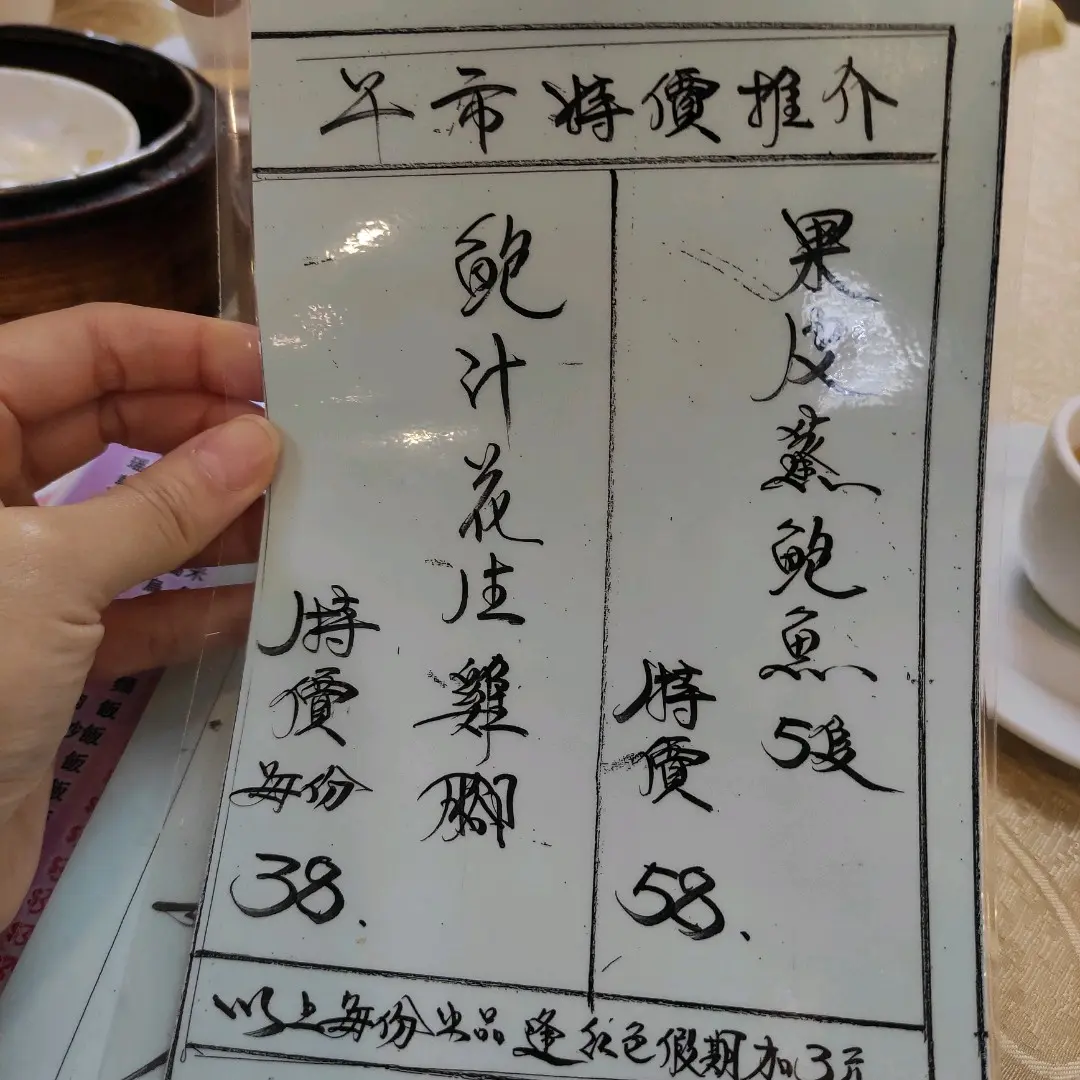 早市特價推介
果皮蒸鮑魚5隻
特價
58.
鮑汁花生雞腳
特價
每份
38.
以上每份出品逢紅色假期加3元
飯
飯
飯